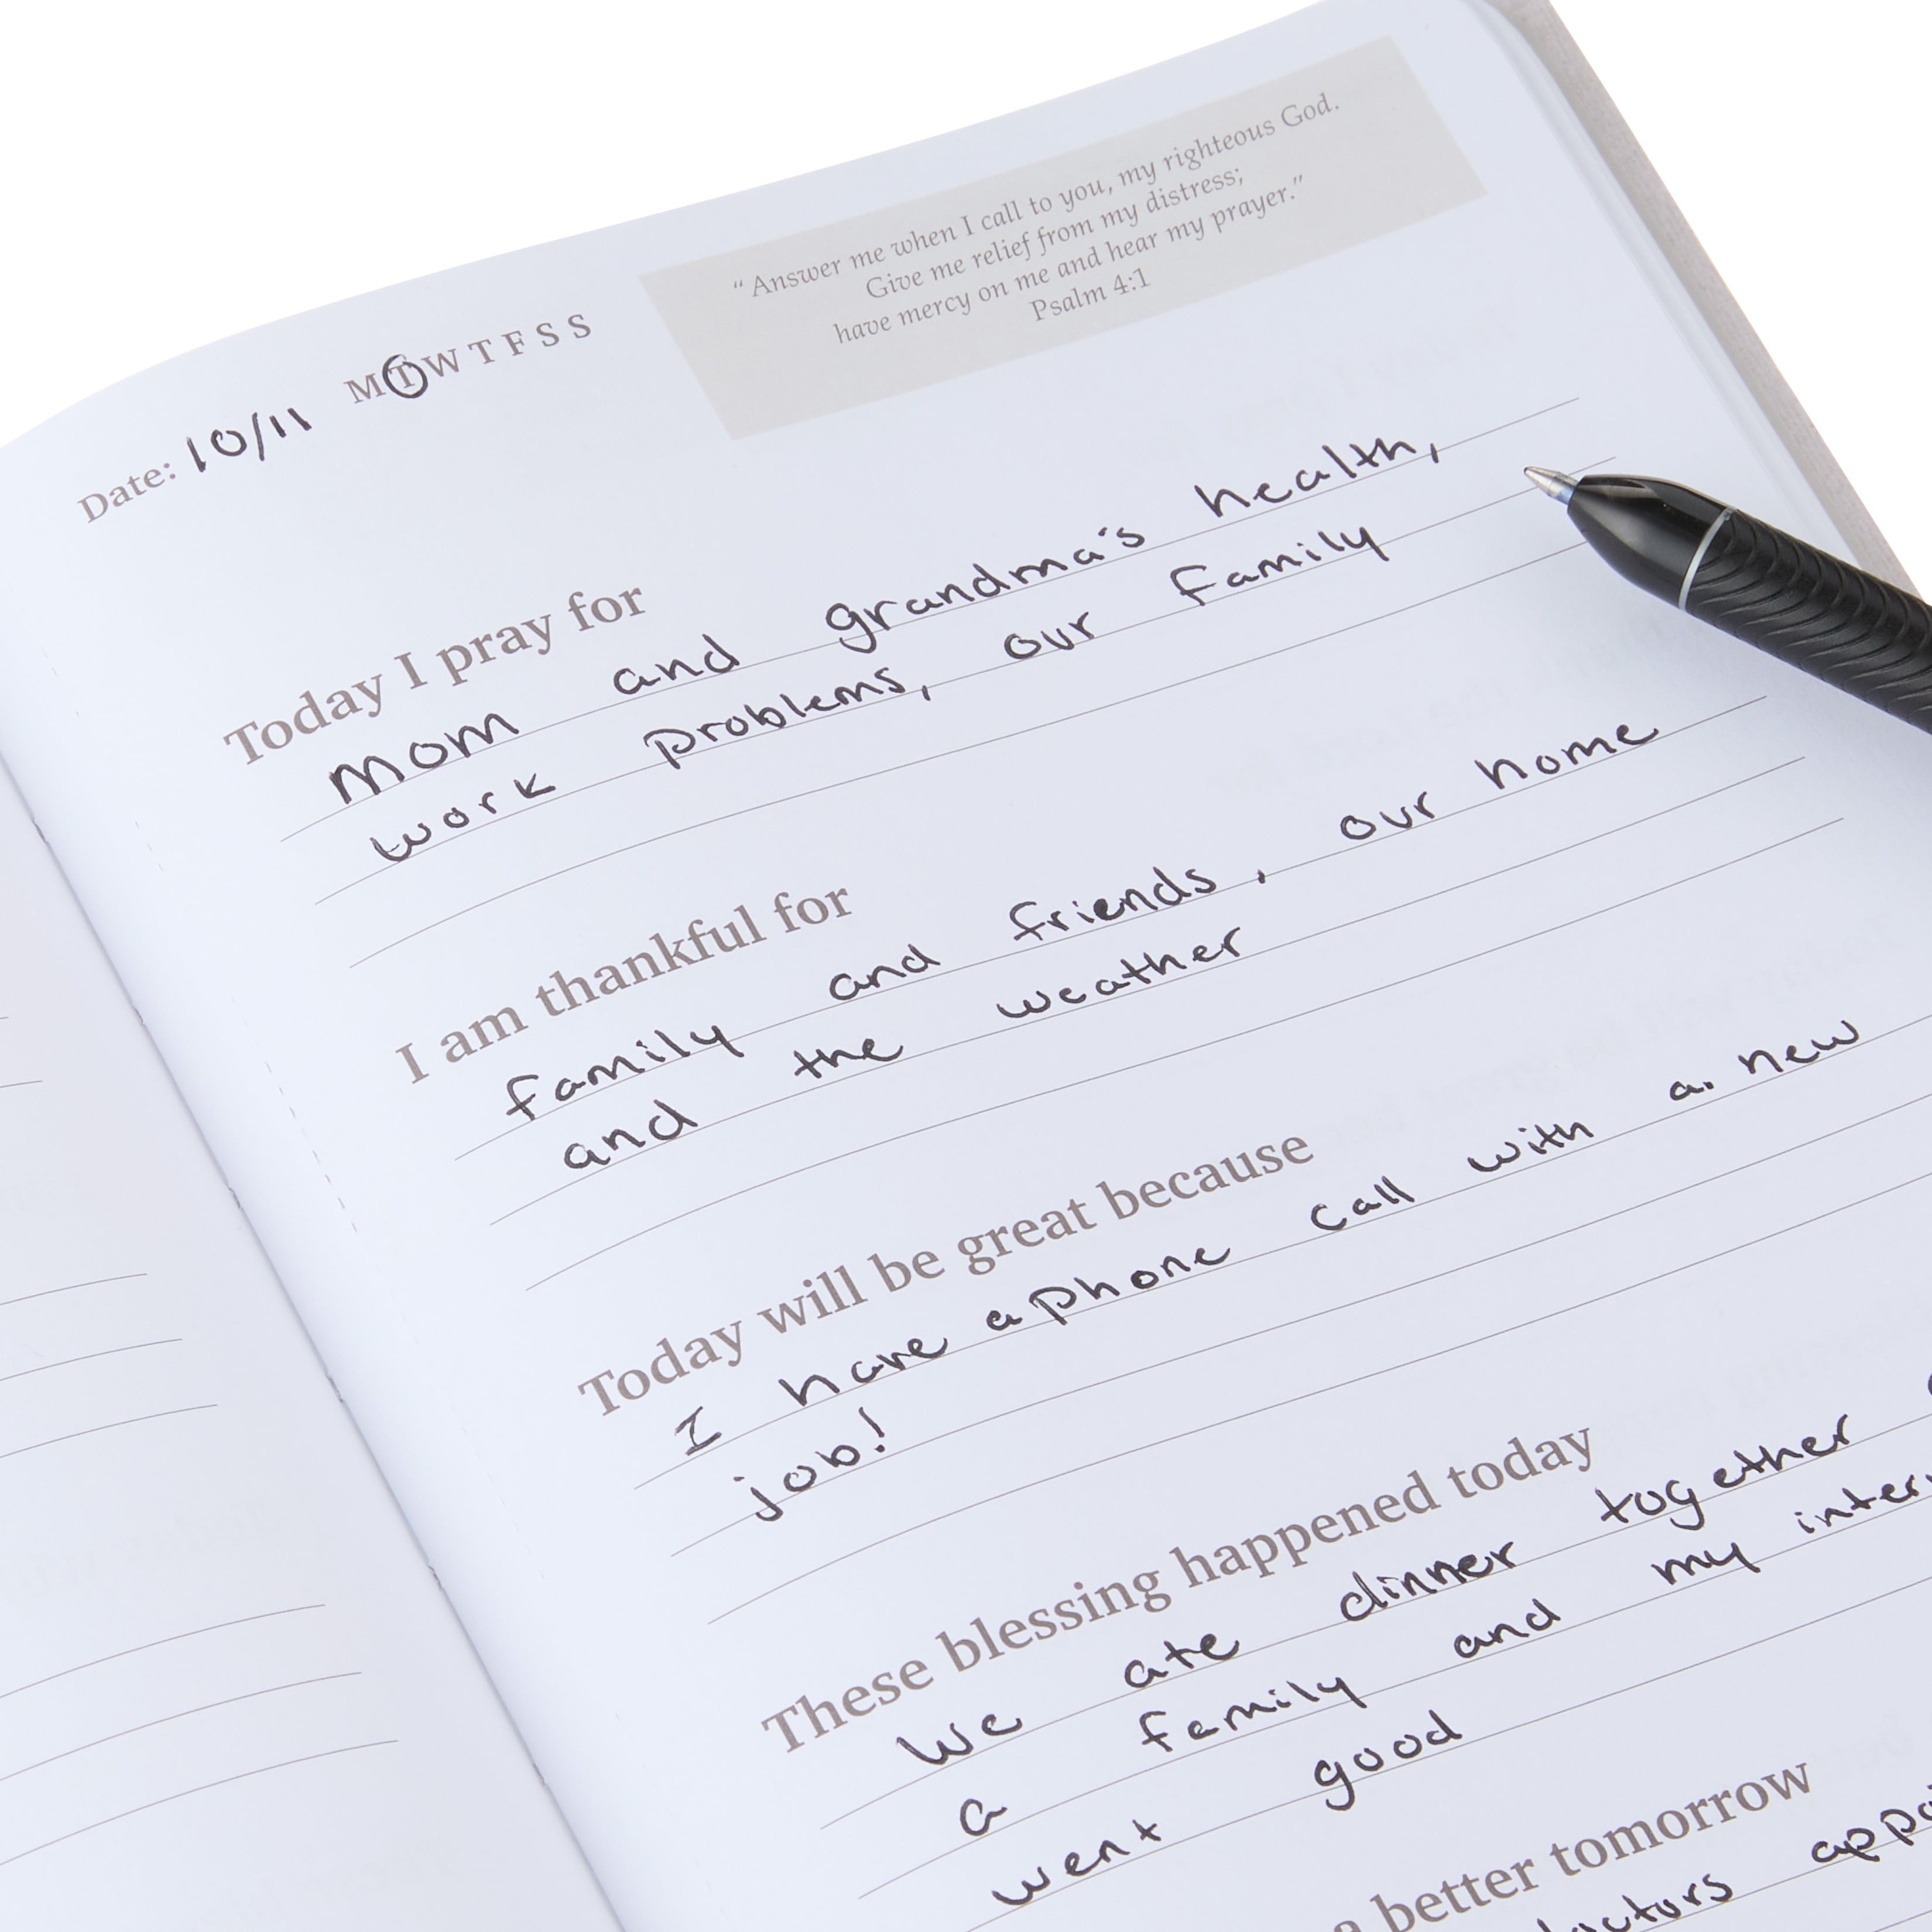 "Answer me when I call to you, my righteous God.
Give me relief from my distress;
have mercy on me and hear my prayer."
Psalm 4:1
Date: 10/11 M T W T F S S
Today I pray for
Mom and grandma's health,
work problems, our family
I am thankful for
family and friends, our home
and the weather
Today will be great because
I have a phone call with a new
job!
These blessing happened today
We ate dinner together
a family and my
went good
a better tomorrow